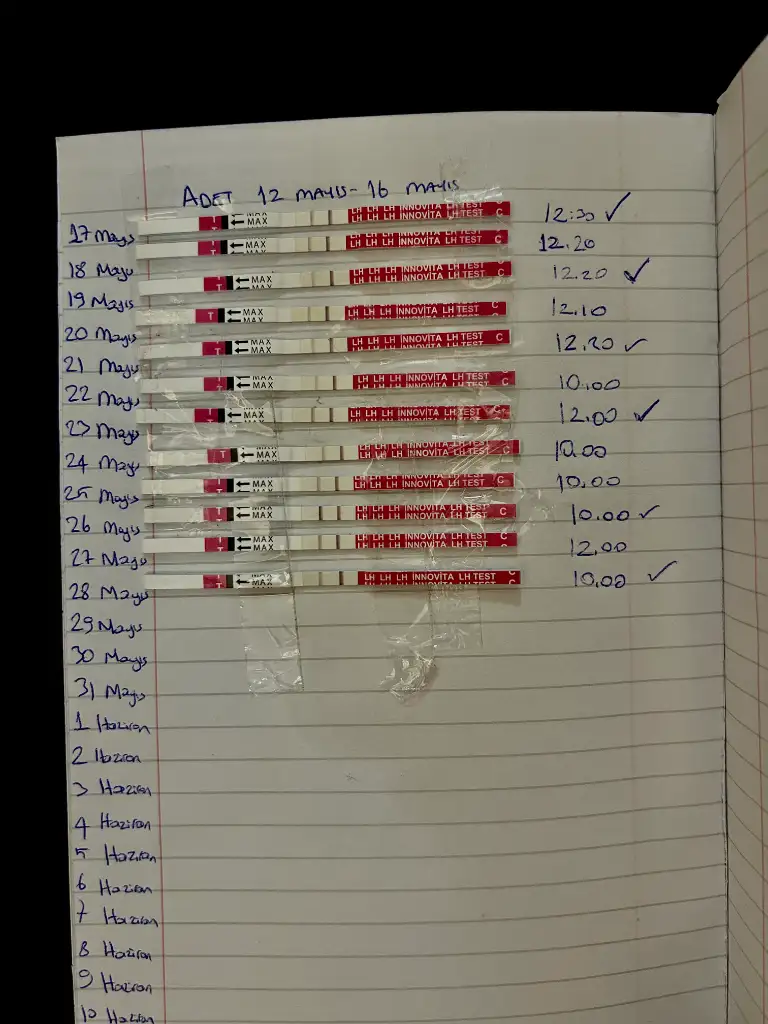 ADET 12 MAYIS - 16 MAYIS
17 Mayıs T ← MAX ← MAX LH LH LH INNOVİTA LH TEST C 12:30 ✓
18 Mayıs T ← MAX LH LH LH INNOVİTA LH TEST C 12.20
19 Mayıs T ← MAX LH LH LH INNOVİTA LH TEST C 12.20 ✓
20 Mayıs T ← MAX ← MAX LH LH LH INNOVİTA LH TEST C 12.10
21 Mayıs T ← MAX ← MAX LH LH LH INNOVİTA LH TEST C 12.20 ✓
22 Mayıs T ← MAX ← MAX LH LH LH INNOVİTA LH TEST C 10.00
23 Mayıs T ← MAX LH LH LH INNOVİTA LH TEST C 12.00 ✓
24 Mayıs T ← MAX LH LH LH INNOVİTA LH TEST C 10.00
25 Mayıs T ← MAX ← MAX LH LH LH INNOVİTA LH TEST C 10.00
26 Mayıs T ← MAX ← MAX LH LH LH INNOVİTA LH TEST C 10.00 ✓
27 Mayıs T ← MAX ← MAX LH LH LH INNOVİTA LH TEST C 12.00
28 Mayıs T ← MAX LH LH LH INNOVİTA LH TEST C 10.00 ✓
29 Mayıs
30 Mayıs
31 Mayıs
1 Haziran
2 Haziran
3 Haziran
4 Haziran
5 Haziran
6 Haziran
7 Haziran
8 Haziran
9 Haziran
10 Haziran